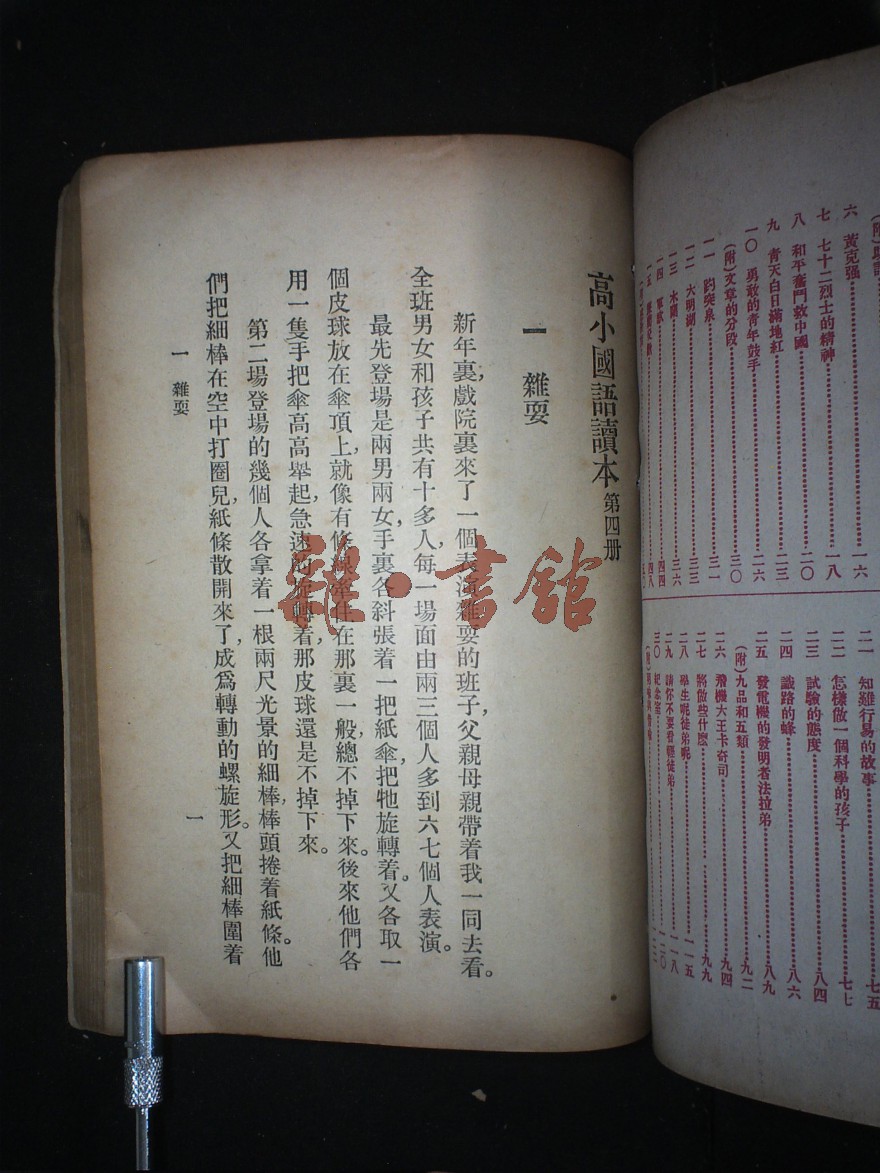 六 黃克强 一六
七 七十二烈士的精神 一八
八 和平奮鬥救中國 二〇
九 青天白日滿地紅 二三
一〇 勇敢的青年鼓手 二六
(附)文章的分段 三〇
一一 趵突泉 三一
一二 大明湖 三三
一三 三六
一四 軍歌 四四
一五 四八
二一 知難行易的故事 七五
二二 怎樣做一個科學的孩子 七七
二三 試驗的態度 八四
二四 識路的蜂 八六
二五 發電機的發明者法拉弟 八九
(附)九品和五類 九二
二六 飛機大王卡奇司 九四
二七 將做些什麼 九九
二八 學生呢徒弟呢 一一五
二九 請你不要看輕徒弟 一一八
三〇 紀念室 一二〇
高小國語讀本 第四册
一 雜耍
新年裏,戲院裏來了一個表演雜耍的班子,父親母親帶着我一同去看。
全班男女和孩子共有十多人,每一場面由兩三個人多到六七個人表演。
最先登場是兩男兩女,手裏各斜張着一把紙傘,把牠旋轉着。又各取一
個皮球放在傘頂上,就像有條 在那裏一般,總不掉下來。後來他們各
用一隻手把傘高高舉起,急速的旋轉着,那皮球還是不掉下來。
第二場登場的幾個人各拿着一根兩尺光景的細棒,棒頭捲着紙條。他
們把細棒在空中打圈兒,紙條散開來了,成爲轉動的螺旋形。又把細棒圍着
一 雜耍
一
雜·書館